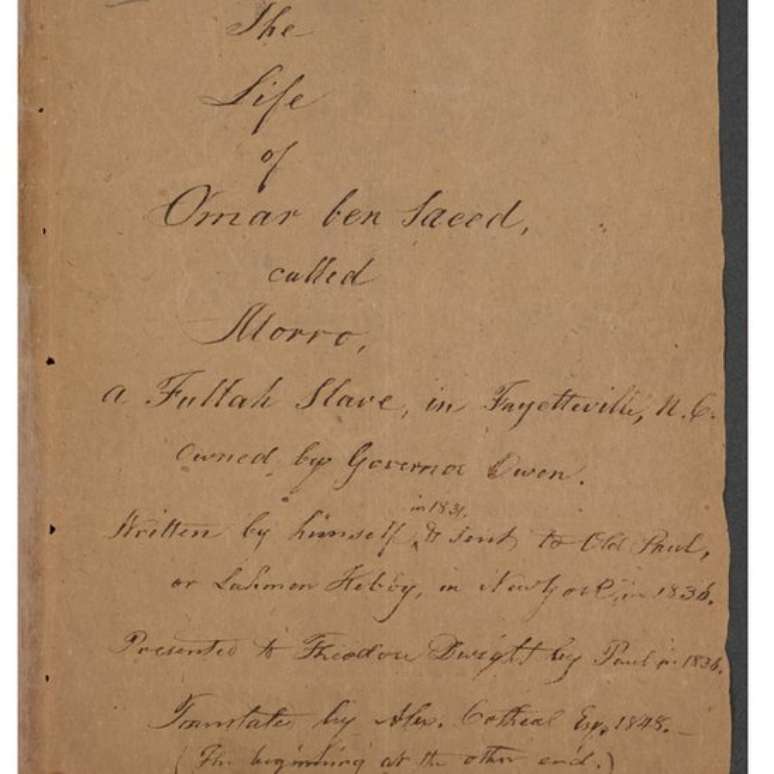 The
Life
of
Omar ben Saeed,
called
Morro,
a Fullah Slave, in Fayetteville, N.C.
Owned by Governor Owen.
in 1831.
Written by himself, & sent to Old Paul,
or Lahmen Kebby, in New York, in 1836.
Presented to Theodore Dwight by Paul in 1836.
Translated by Alex. Cotheal Esq. 1848.
(The beginning at the other end.)